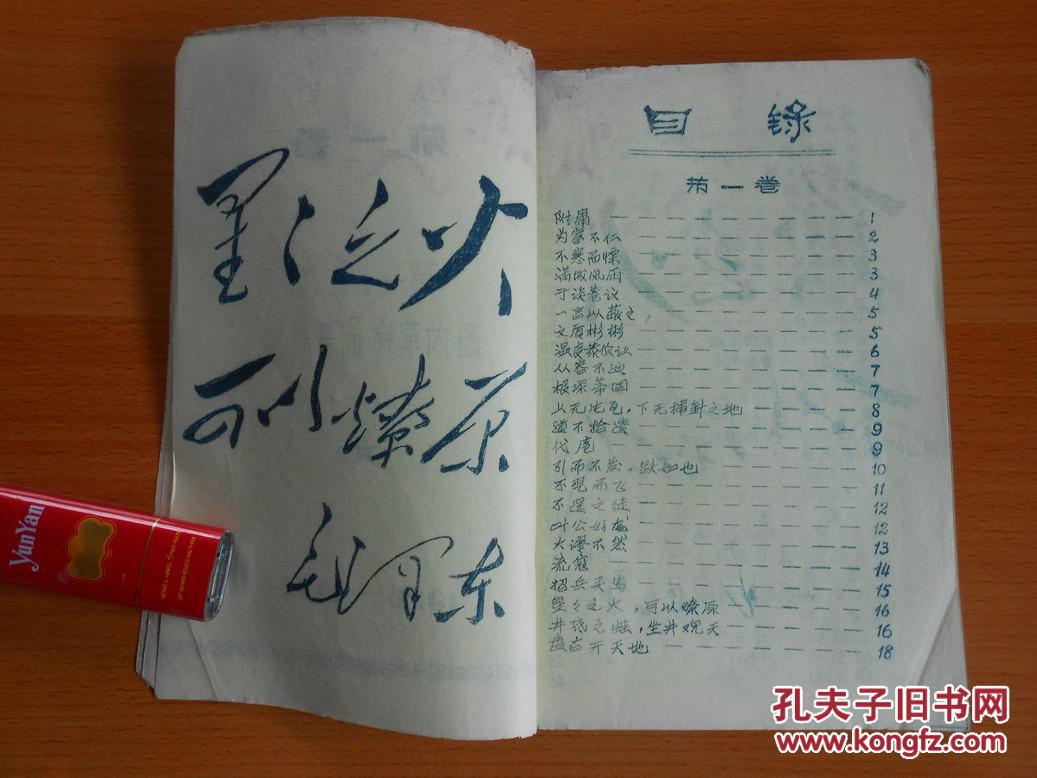 星々之火
可以燎原
毛泽东
目 录
第一卷
附庸 — — — — — — — — — 1
为富不仁 — — — — — — — — — 2
不寒而慄 — — — — — — — — — 3
满城风雨 — — — — — — — — — 3
于谈巷议 — — — — — — — — — 4
一言以蔽之 — — — — — — — — — 5
文质彬彬 — — — — — — — — — 5
温良恭俭让 — — — — — — — — — 6
从容不迫 — — — — — — — — — 7
根深蒂固 — — — — — — — — — 7
上无片瓦，下无插针之地 — — — — — 8
道不拾遗 — — — — — — — — — 9
代庖 — — — — — — — — — 9
引而不发，跃如也 — — — — — — 10
不翼而飞 — — — — — — — — — 11
不逞之徒 — — — — — — — — — 12
叶公好龙 — — — — — — — — — 12
大谬不然 — — — — — — — — — 13
流寇 — — — — — — — — — 14
招兵买马 — — — — — — — — — 15
星々之火，可以燎原 — — — — — — 16
井底之蛙，坐井观天 — — — — — — 16
盘古开天地 — — — — — — — — 18
YunYan
孔夫子旧书网
www.kongfz.com